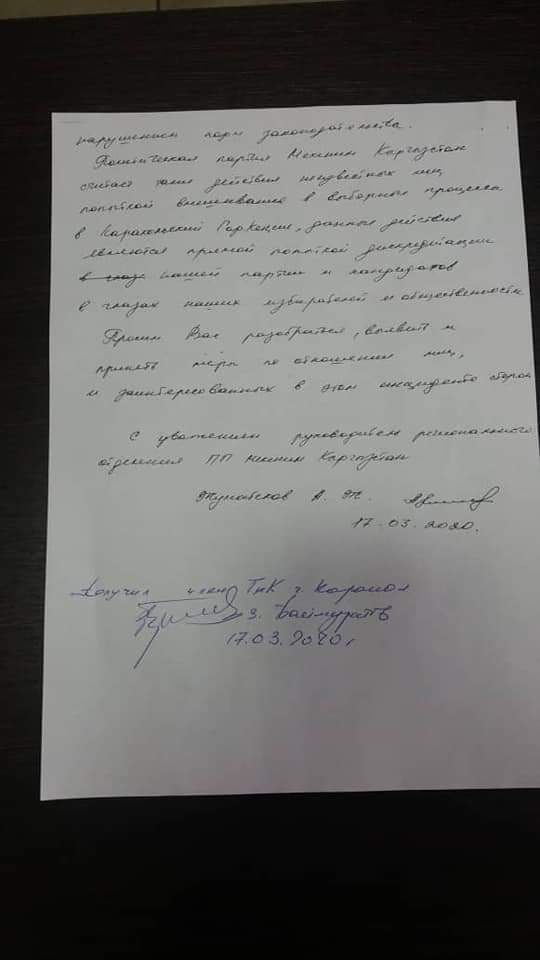 нарушением норм законодательства.
Политическая партия Мекеним Кыргызстан
считает такие действия неизвестных лиц
попыткой вмешивание в выборные процессы
в Каракольский Горкенеш, данные действия
являются прямой попыткой дискредитации
в глаза нашей партии и кандидатов
в глазах наших избирателей и общественности
Просим Вас разобраться, выявить и
принять меры по отношении лиц,
и заинтересованных в этом инциденте сторон
С уважением руководитель регионального
отделения ПП Мекеним Кыргызстан
А. Ж.
17.03.2020.
Получил член ТИК г. Каракол
З. Баймуратов
17.03.2020г